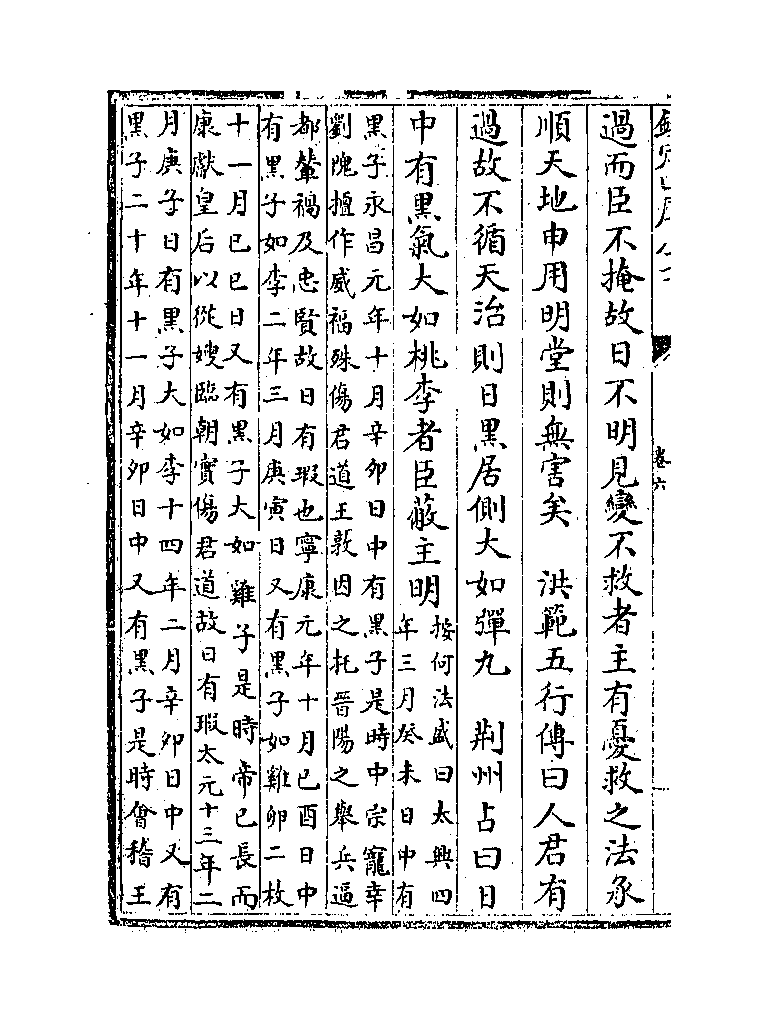 卷六
過而臣不掩故日不明見變不救者主有憂救之法承
順天地申用明堂則無害矣　洪範五行傳曰人君有
過故不循天治則日黑居側大如彈丸　荆州占曰日
中有黑氣大如桃李者臣蔽主明
按何法盛曰太興四
年三月癸未日中有
黑子永昌元年十月辛卯日中有黑子是時中宗寵幸
劉隗擅作威福殊傷君道王敦因之扥晉陽之舉兵逼
都輦禍及忠賢故日有瑕也寧康元年十月己酉日中
有黑子如李二年三月庚寅日又有黑子如雞卵二枚
十一月己巳日又有黑子大如雞子是時帝已長而
康獻皇后以從嫂臨朝實傷君道故日有瑕太元十三年二
月庚子日有黑子大如李十四年二月辛卯日中又有
黑子二十年十一月辛卯日中又有黑子是時會稽王